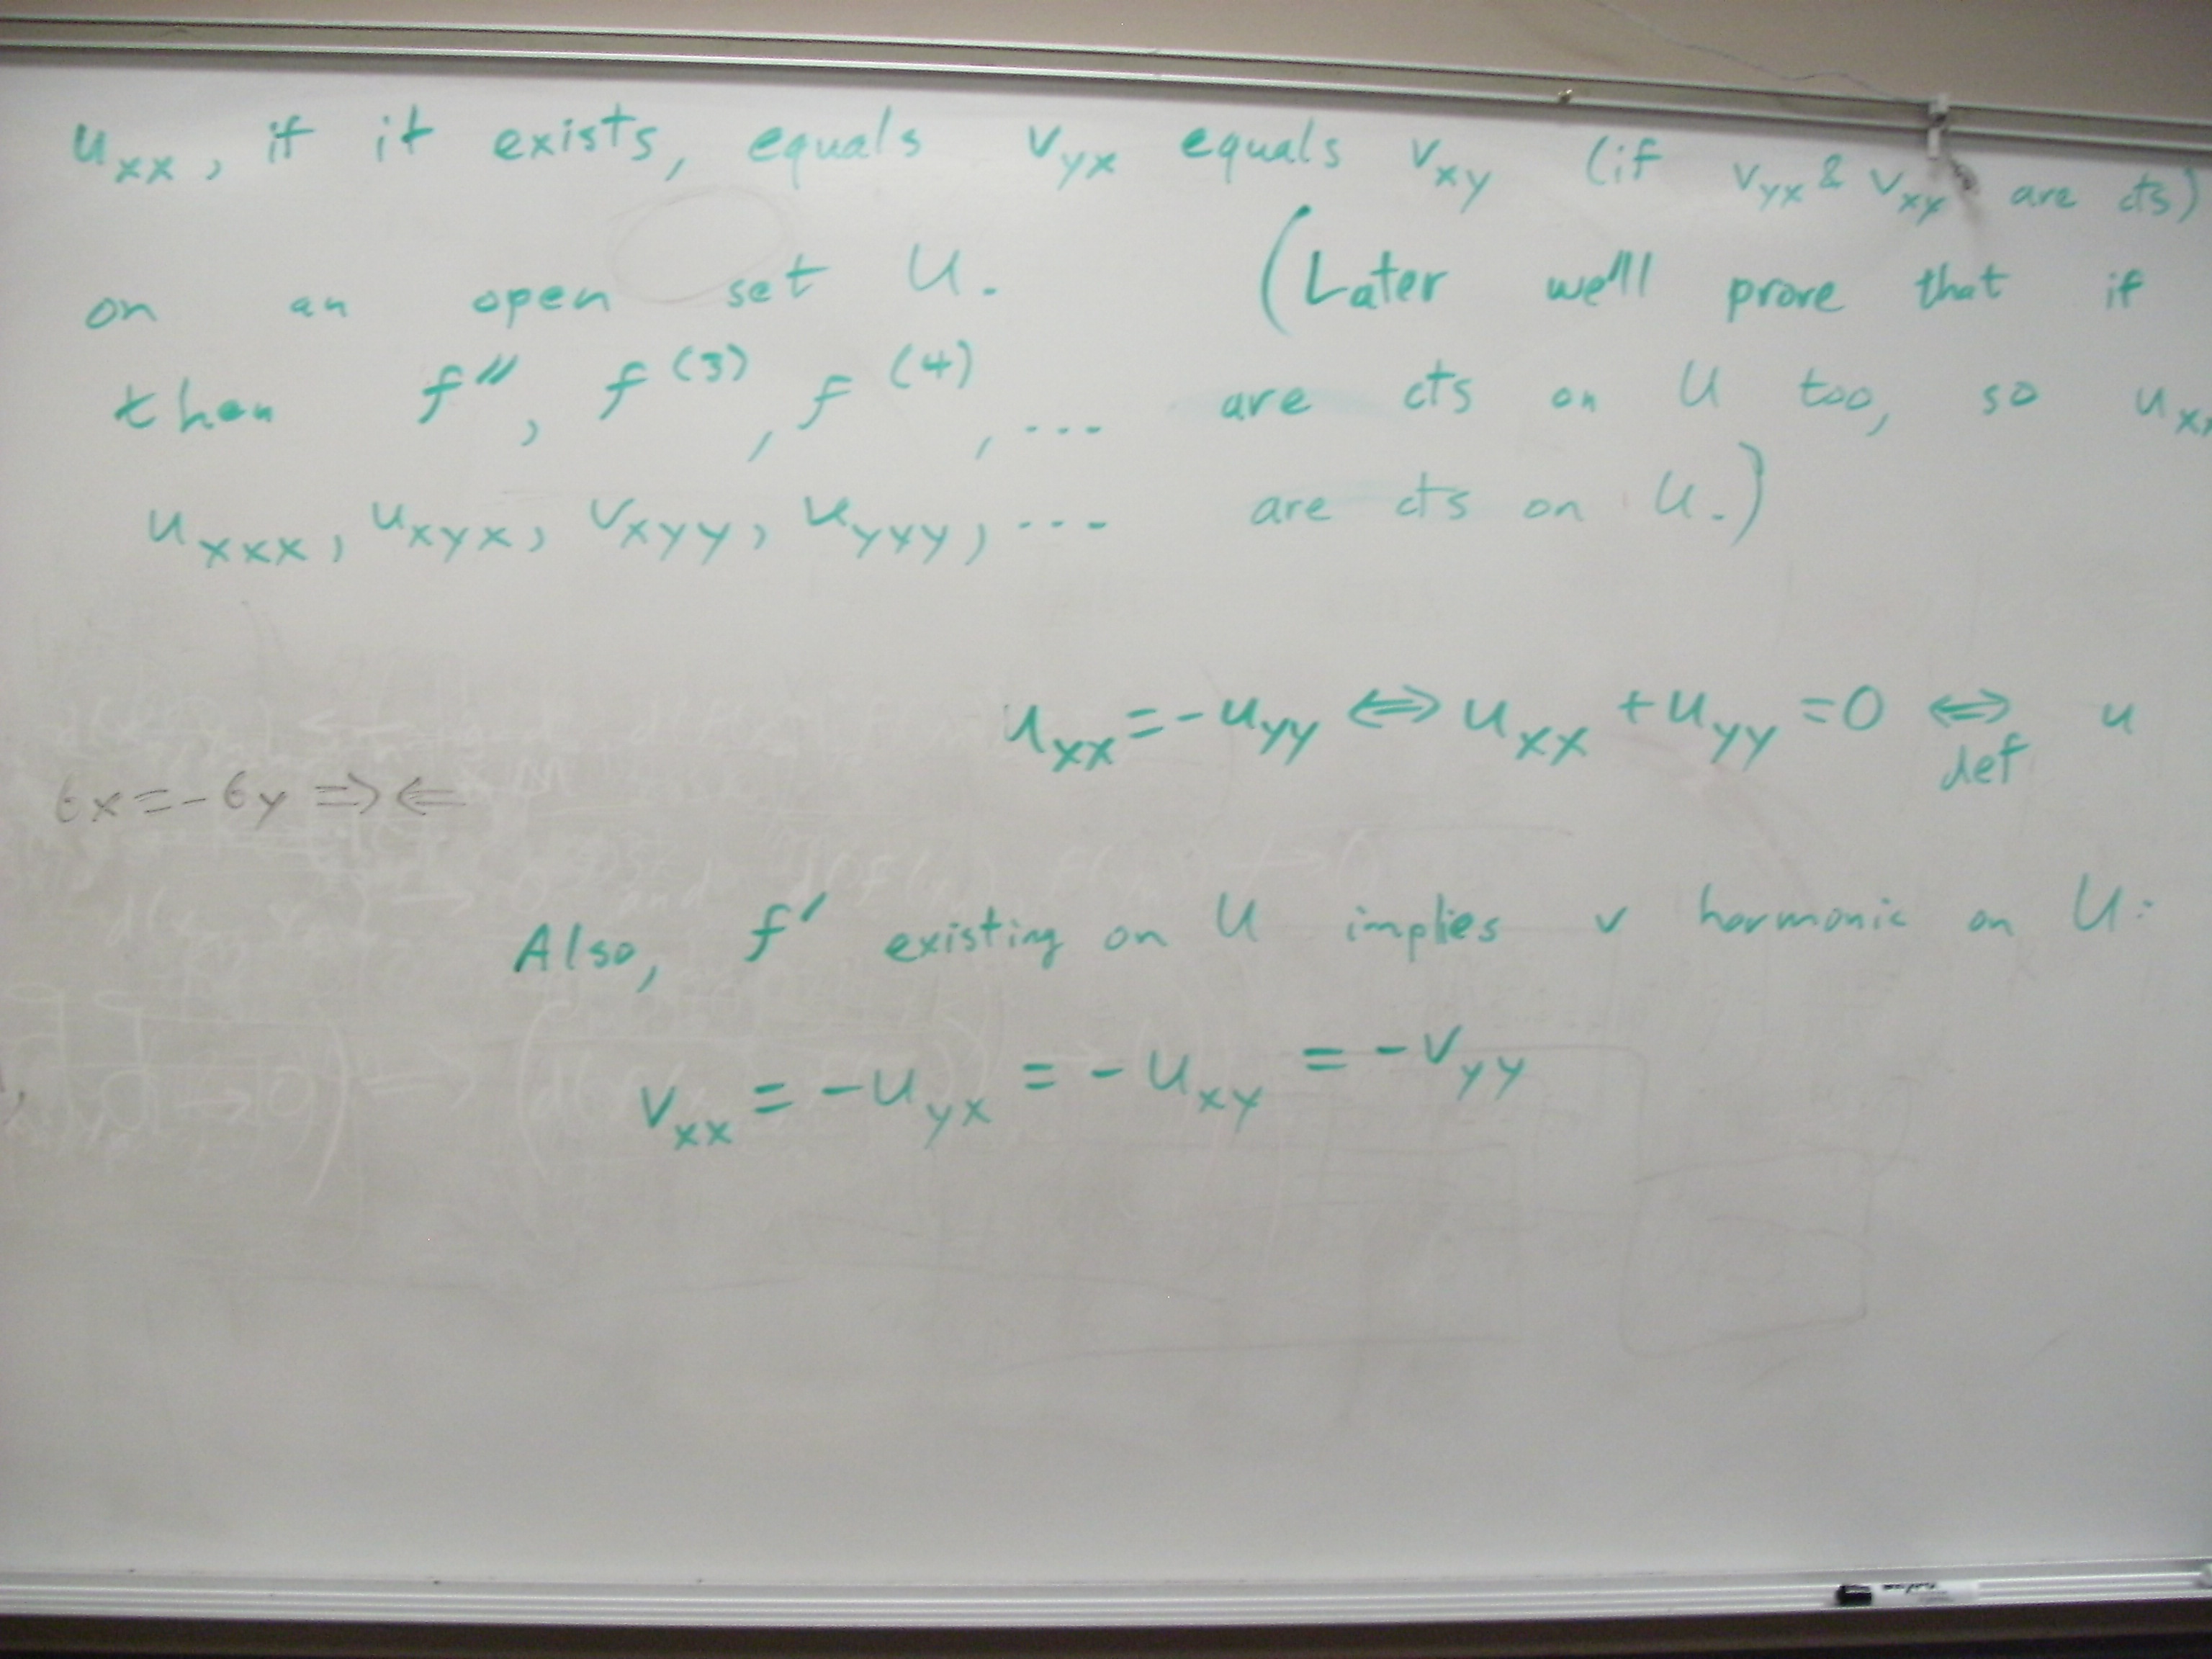 u_xx, if it exists, equals v_yx equals v_xy (if v_yx & v_xy are cts)
on an open set U. (Later we'll prove that if
then f'', f^(3), f^(4), ... are cts on U too, so u_xx
u_xxx, u_xyx, v_xyy, u_yxy, ... are cts on U.)
u_xx = -u_yy ⇔ u_xx + u_yy = 0 ⇔ u
def
6x = -6y ⇒⇐
Also, f' existing on U implies v harmonic on U:
v_xx = -u_yx = -u_xy = -v_yy